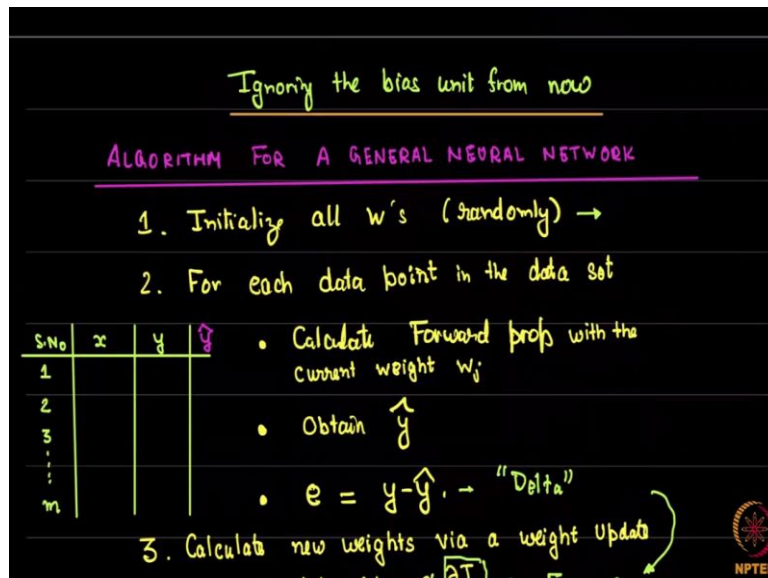 Ignoring the bias unit from now
ALGORITHM FOR A GENERAL NEURAL NETWORK
1. Initialize all w's (randomly) →
2. For each data point in the data set
• Calculate Forward prop with the
current weight wj
• Obtain ŷ
• e = y-ŷ. → "Delta"
S.No x y ŷ
1
2
3
⋮
m
3. Calculate new weights via a weight Update
NPTEL